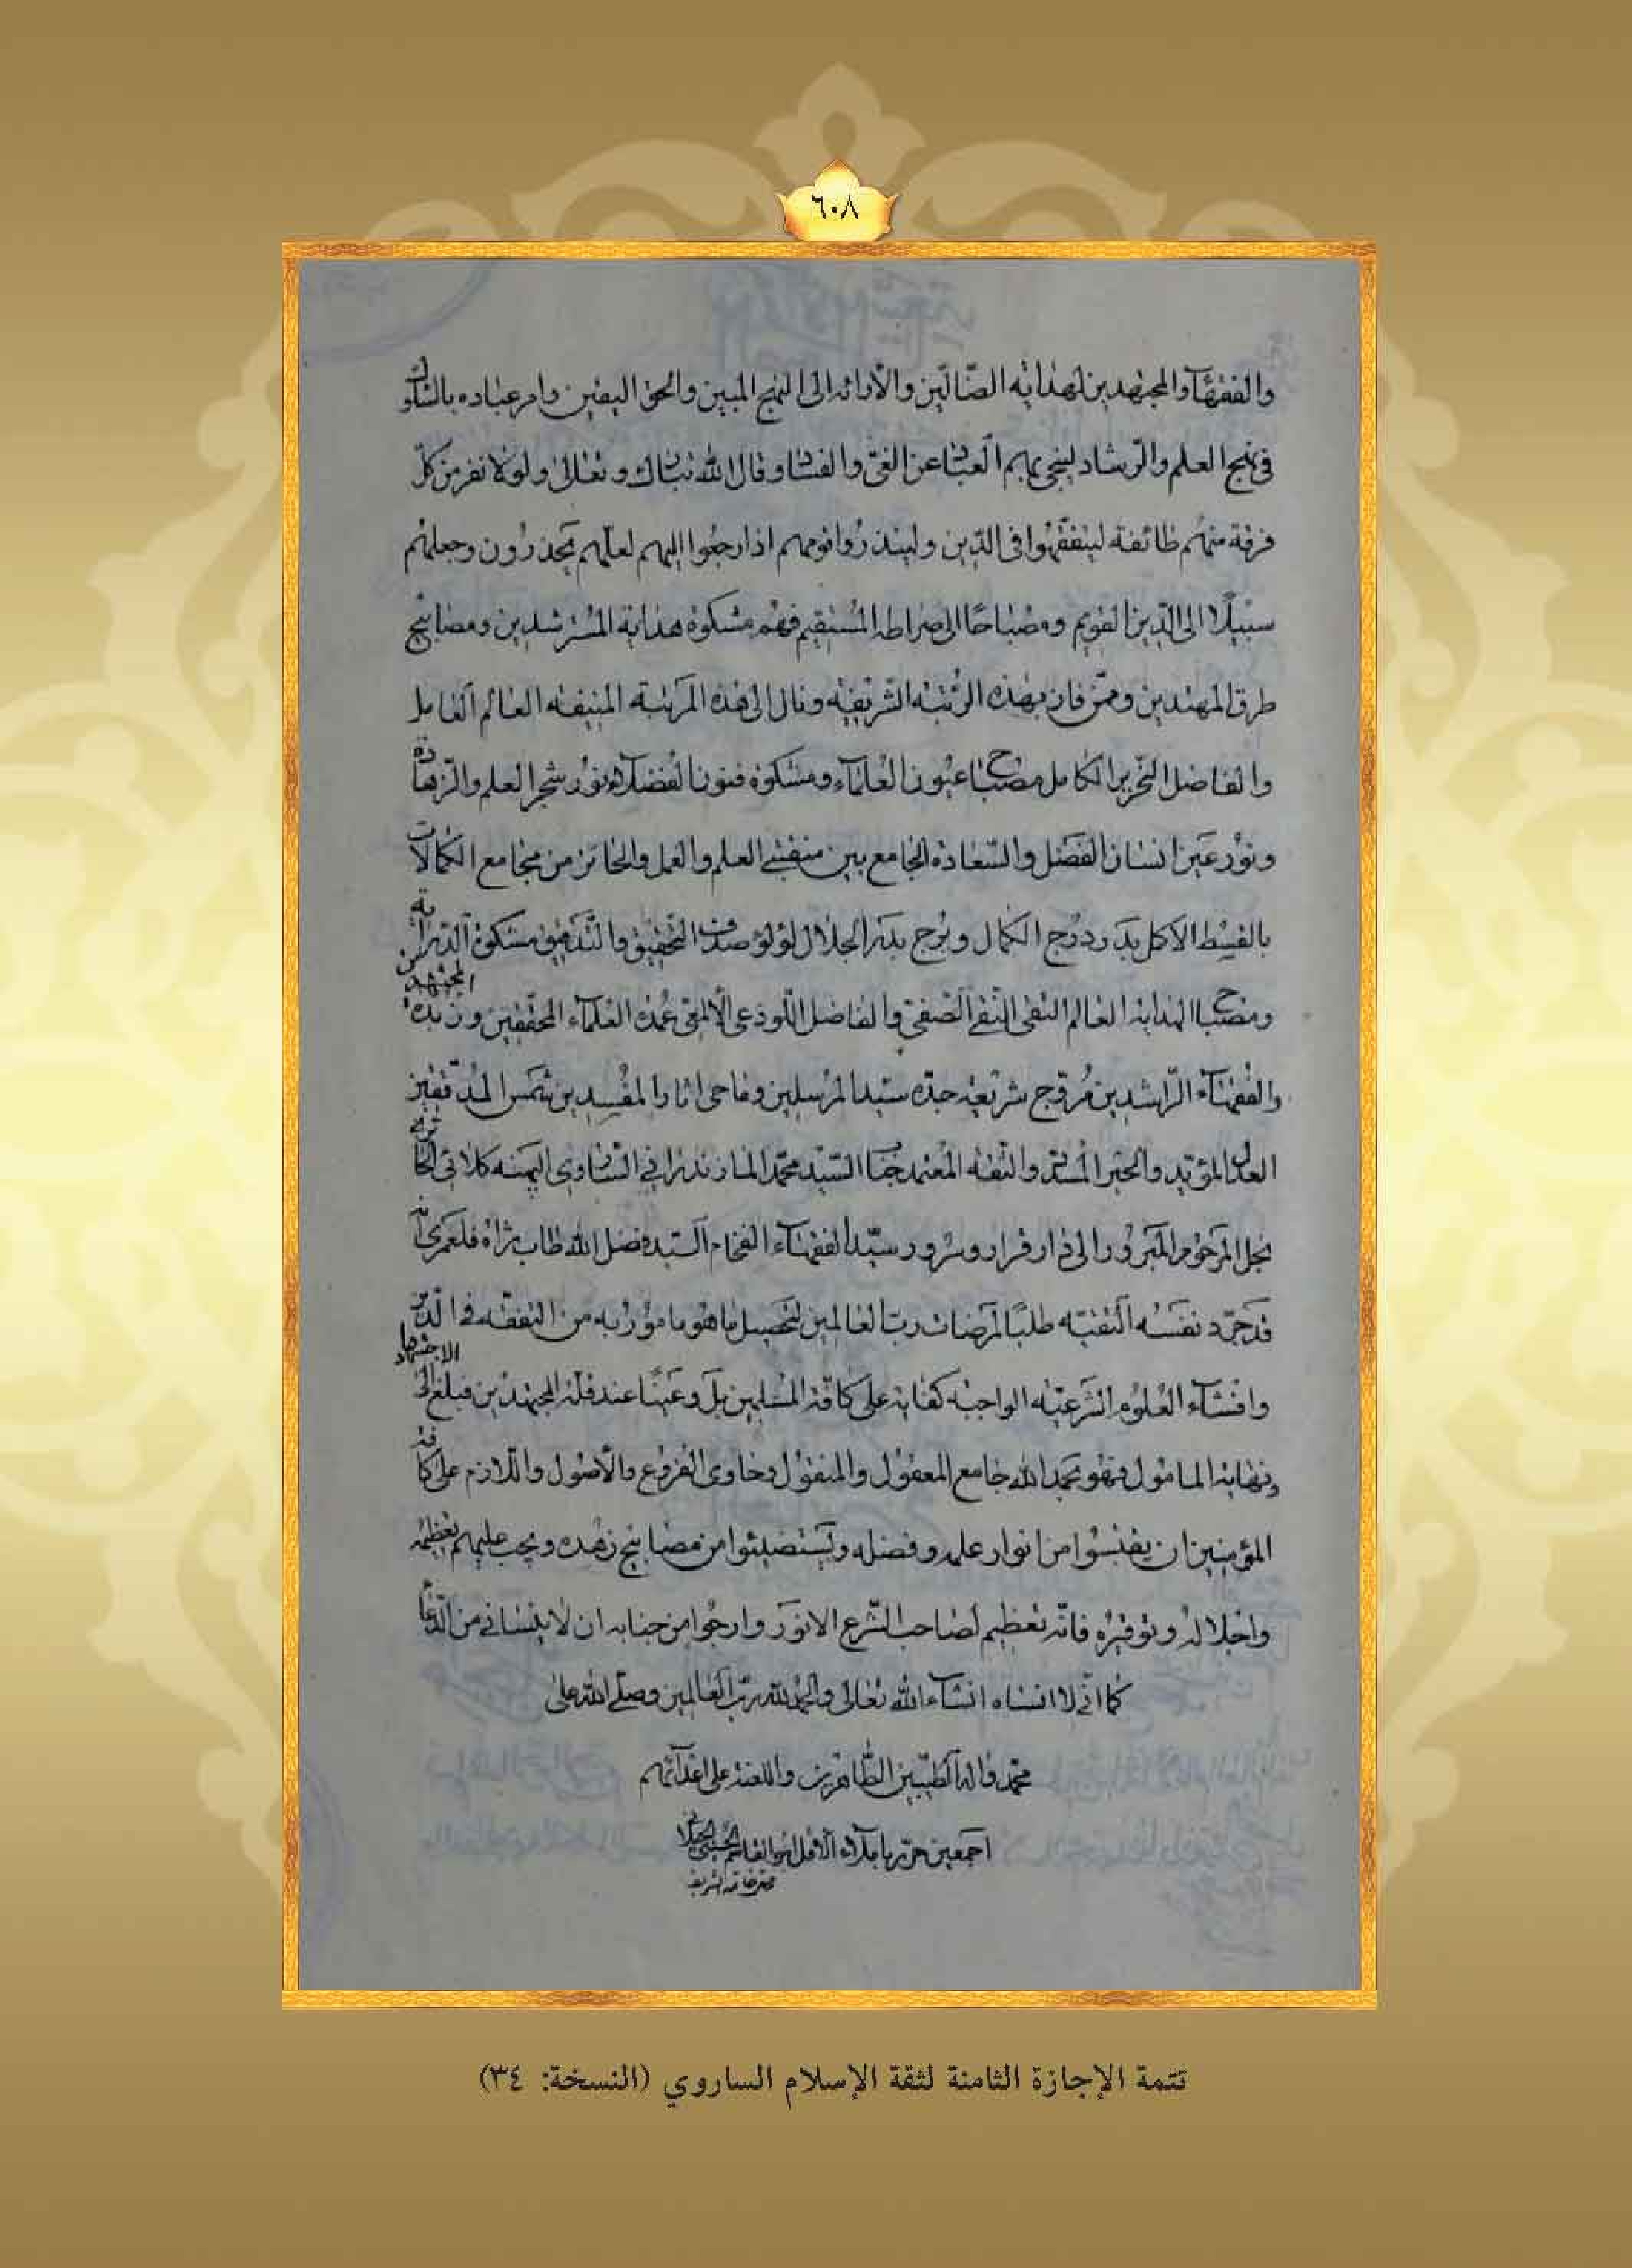 ٦٠٨
والفقهاء والمجتهدين لهداية الضالين والاراءة الى النهج المبين والحق اليقين وامر عباده بالسلوك
في نهج العلم والرشاد لينجي بهم العباد عن الغي والفساد وقال الله تبارك وتعالى ولولا نفر من كل
فرقة منهم طائفة ليتفقهوا في الدين ولينذروا قومهم اذا رجعوا اليهم لعلهم يحذرون وجعلهم
سبيلا الى الدين القويم ومصباحا الى صراطه المستقيم فهم مشكوة هداية المسترشدين ومصابيح
طرق المهتدين وممن فاز بهذه الرتبة الشريفة ونال الى هذه المرتبة المنيفة العالم العامل
والفاضل النحرير الكامل مصباح عيون العلماء ومشكوة فنون الفضلاء نور شجر العلم والزهادة
ونور عين انسان الفضل والسعادة الجامع بين منقبتي العلم والعمل والحائز من مجامع الكمالات
بالقسط الاكمل بدر درج الكمال وبرج بدر الجلال لؤلؤ صدف التحقيق والتدقيق مشكوة الدراية
ومصباح الهداية العالم التقي النقي الصفي والفاضل اللوذعي الالمعي عمدة العلماء المحققين وزبدة المجتهدين
والفقهاء الراشدين مروج شريعة جده سيد المرسلين وماحي اثار المفسدين شمس المدققين
العدل المؤيد والحبر المسدد والثقة المعتمد جناب السيد محمد المازندراني الساروي
نجل المرحوم المبرور الى دار قرار وسرور سيد الفقهاء الفخام السيد فضل الله طاب ثراه فلعمري انه
قد جرد نفسه النفيسة طلبا لمرضات رب العالمين لتحصيل ما هو مامور به من التفقه في الدين
وافشاء العلوم الشرعية الواجبة كفاية على كافة المسلمين بل وعينا عند قلة المجتهدين فبلغ الى الاجتهاد
ونهاية المامول فهو بحمد الله جامع المعقول والمنقول وحاوي الفروع والاصول واللازم على كافة
المؤمنين ان يقتبسوا من انوار علمه وفضله ويستضيئوا من مصابيح زهده ويجب عليهم تعظيمه
واجلاله وتوقيره فانه تعظيم لصاحب الشرع الانور وارجوا من جنابه ان لا ينساني من الدعاء
كما اني لا انساه انشاء الله تعالى والحمد لله رب العالمين وصلى الله على
محمد واله الطيبين الطاهرين واللعنة على اعدائهم
اجمعين حرره باملاء الاقل ابو القاسم الحسيني
تتمة الإجازة الثامنة لثقة الإسلام الساروي (النسخة: ٣٤)